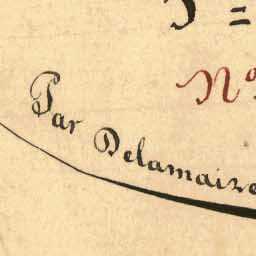 N°
Par Delamaize